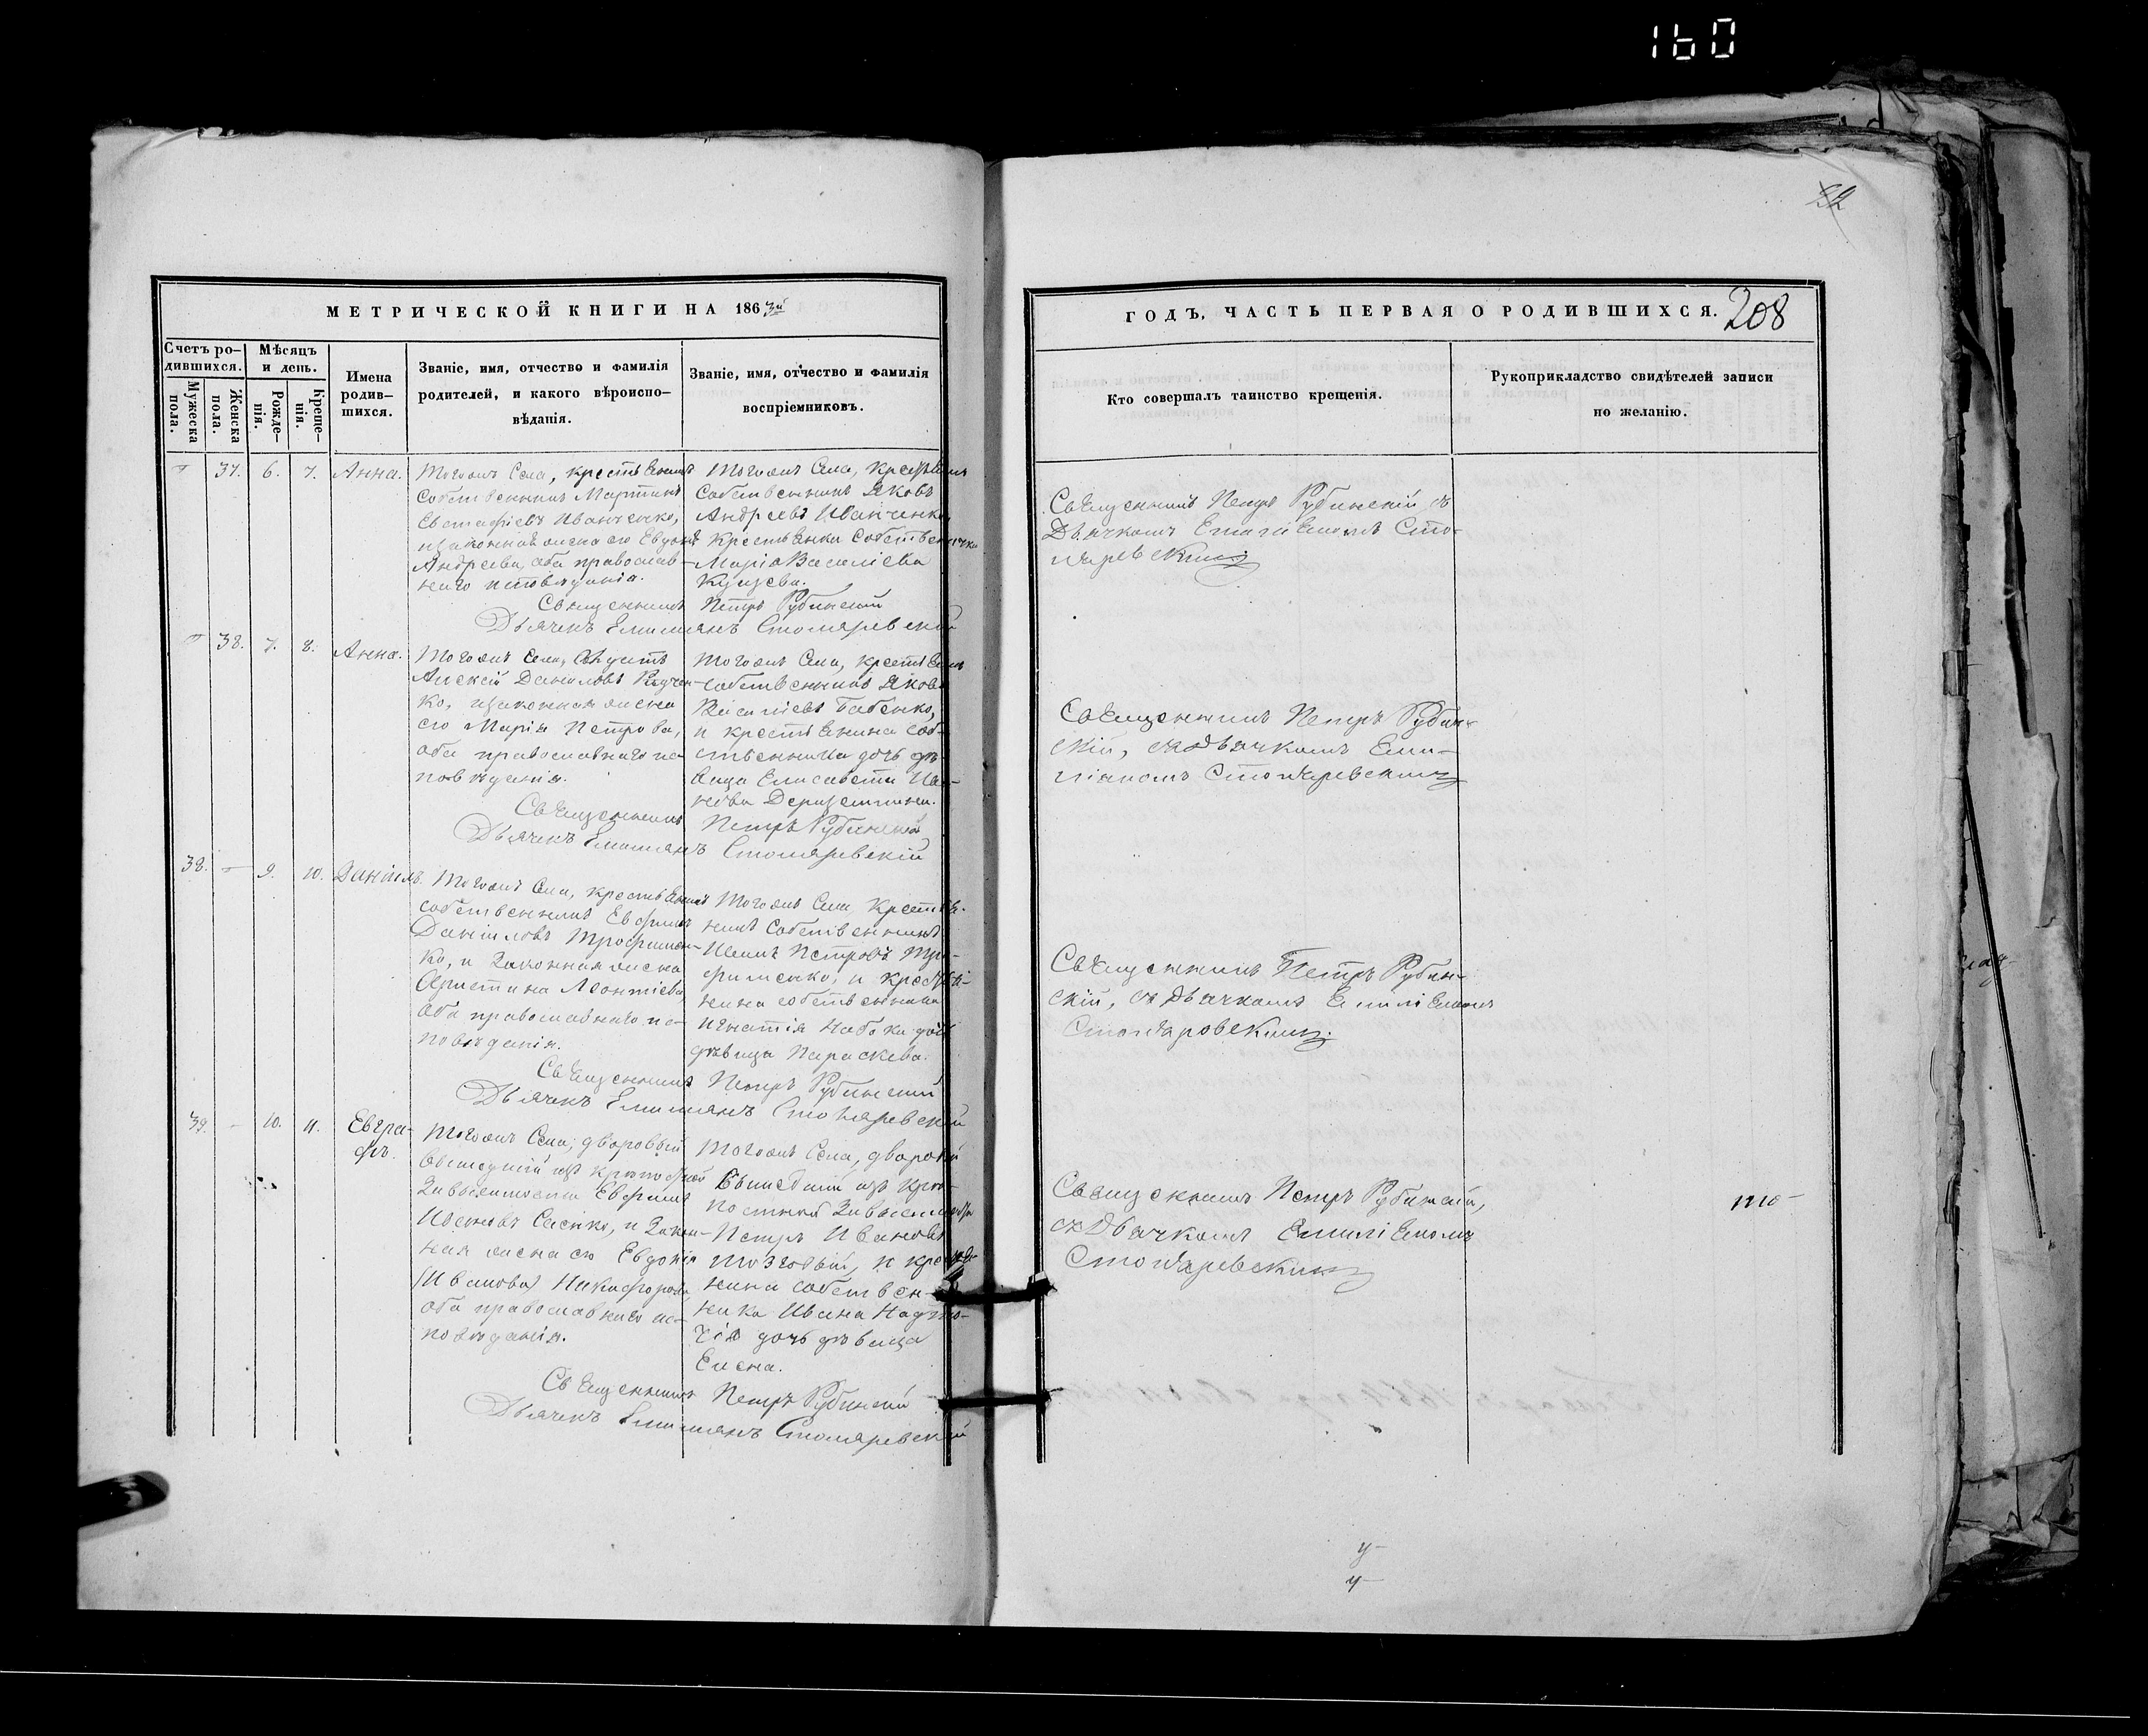 160
32
МЕТРИЧЕСКОЙ КНИГИ НА 1863й
Счетъ ро-
дившихся.
Мѣсяцъ
и день.
Мужеска
пола.
Женска
пола.
Рожде-
нія.
Креще-
нія.
Имена
родив-
шихся.
Званіе, имя, отчество и фамилія
родителей, и какого вѣроиспо-
вѣданія.
Званіе, имя, отчество и фамилія
воспріемниковъ.
37. 6. 7. Анна.
Тогожъ Села, крестьянинъ
собственникъ Мартинъ
Евстафіевъ Иванченко,
и законная жена его Евдокія
Андреева, оба православ-
наго исповѣданія.
Тогожъ Села, крестьянинъ
собственникъ Яковъ
Андреевъ Иванченко,
Крестьянка Собственничка
Марія Василіева
Священникъ Петръ Рубинскій
Дьячекъ Емиліянъ Столяревскій
38. 7. 8. Анна.
Тогожъ Села,
Алексѣй Даниловъ
ко, и законная жена
его Марія Петрова,
оба православнаго ис-
повѣданія.
Тогожъ Села, крестьянинъ
собственникъ Яковъ
Василіевъ Бабенко,
и крестьянина соб-
ственника дочь дѣ-
вица Елисавета Ива-
нова
Священникъ Петръ Рубинскій
Дьячекъ Емиліянъ Столяревскій
38. - 9. 10. Даніилъ.
Тогожъ Села, крестьянинъ
собственникъ Евфимъ
Даніиловъ Трофимен-
ко, и Законная жена
Христина Леонтіева
оба православнаго ис-
повѣданія.
Тогожъ Села Крестья-
нинъ Собственникъ
Петровъ Тро-
фименко, и кресья-
нина собственника
Игнатія Набоки дочь
дѣвица Параскева.
Священникъ Петръ Рубинскій
Дьячекъ Емиліянъ Столяревскій
39. - 10. 11. Евгра-
фъ.
Тогожъ Села, дворовый
вышедшій изъ крѣпостной
Зависимости Евфимъ
и Закон-
ная жена его Евдокія
(Иванова) Никифорова,
оба православнаго ис-
повѣданія.
Тогожъ Села, дворовый
вышедшій изъ крѣ-
постной Зависимости
Петръ Ивановъ
Мозговый, и крестья-
нина собствен-
ника Ивана Надто-
чія дочь дѣвица
Елена.
Священникъ Петръ Рубинскій
Дьячекъ Емиліянъ Столяревскій
ГОДЪ, ЧАСТЬ ПЕРВАЯ О РОДИВШИХСЯ.
208
Кто совершалъ таинство крещенія.
Рукоприкладство свидѣтелей записи
по желанію.
Священникъ Петръ Рубинскій съ
Дьячкомъ Емиліяномъ Сто-
ляревскимъ
Священникъ Петръ Рубин-
скій, съ дьячкомъ Еми-
ліяномъ Столяревскимъ
Священникъ Петръ Рубин-
скій, съ Дьячкомъ Емиліяномъ
Столяровскимъ.
Священникъ Петръ Рубинскій,
съ Дьячкомъ Емиліяномъ
Столяревскимъ